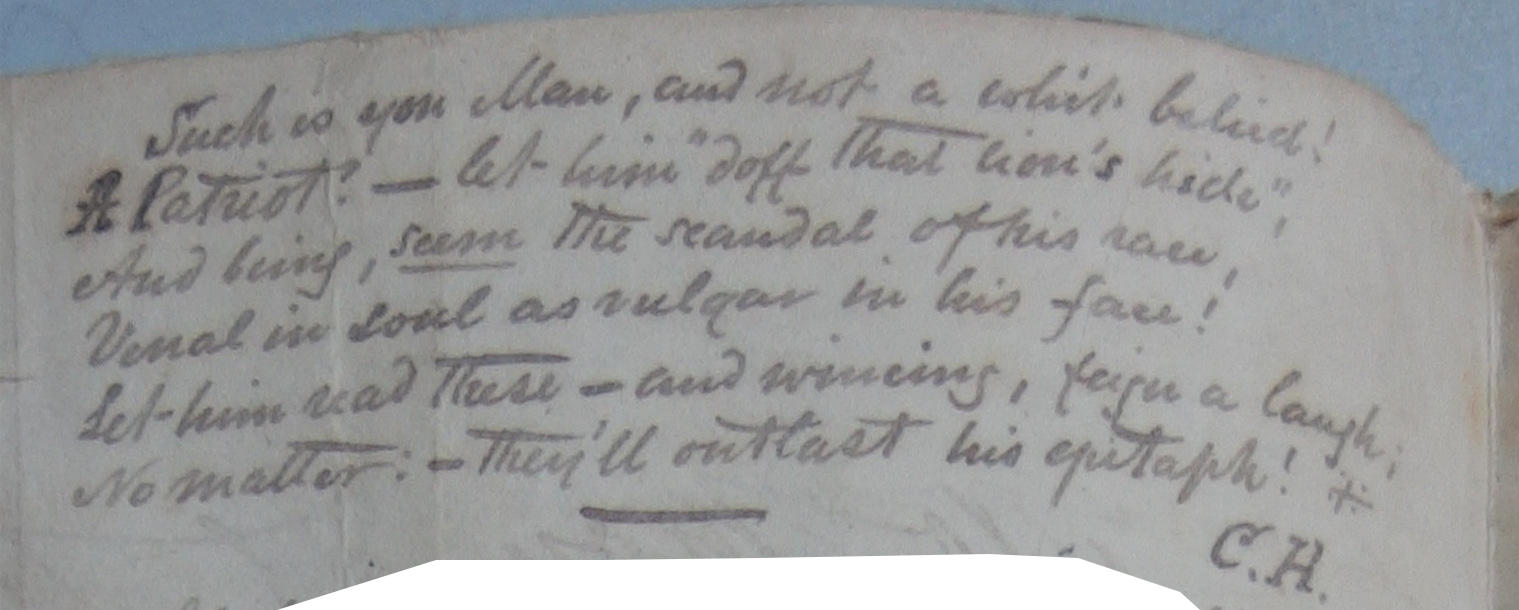 Such is yon Man, and not a whit belied!
A Patriot? — let him "doff that lion's hide",
And being, seem the scandal of his race,
Venal in soul as vulgar in his face!
Let him read these – and wincing, feign a laugh;
No matter: – they'll outlast his epitaph! *
C.H.